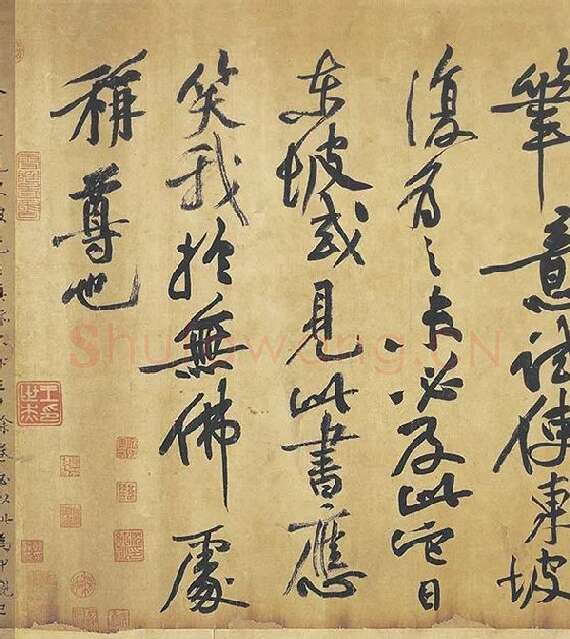 筆意試使東坡
復為之未必及此它日
東坡或見此書應
笑我於無佛處
稱尊也
Shufawang.CN